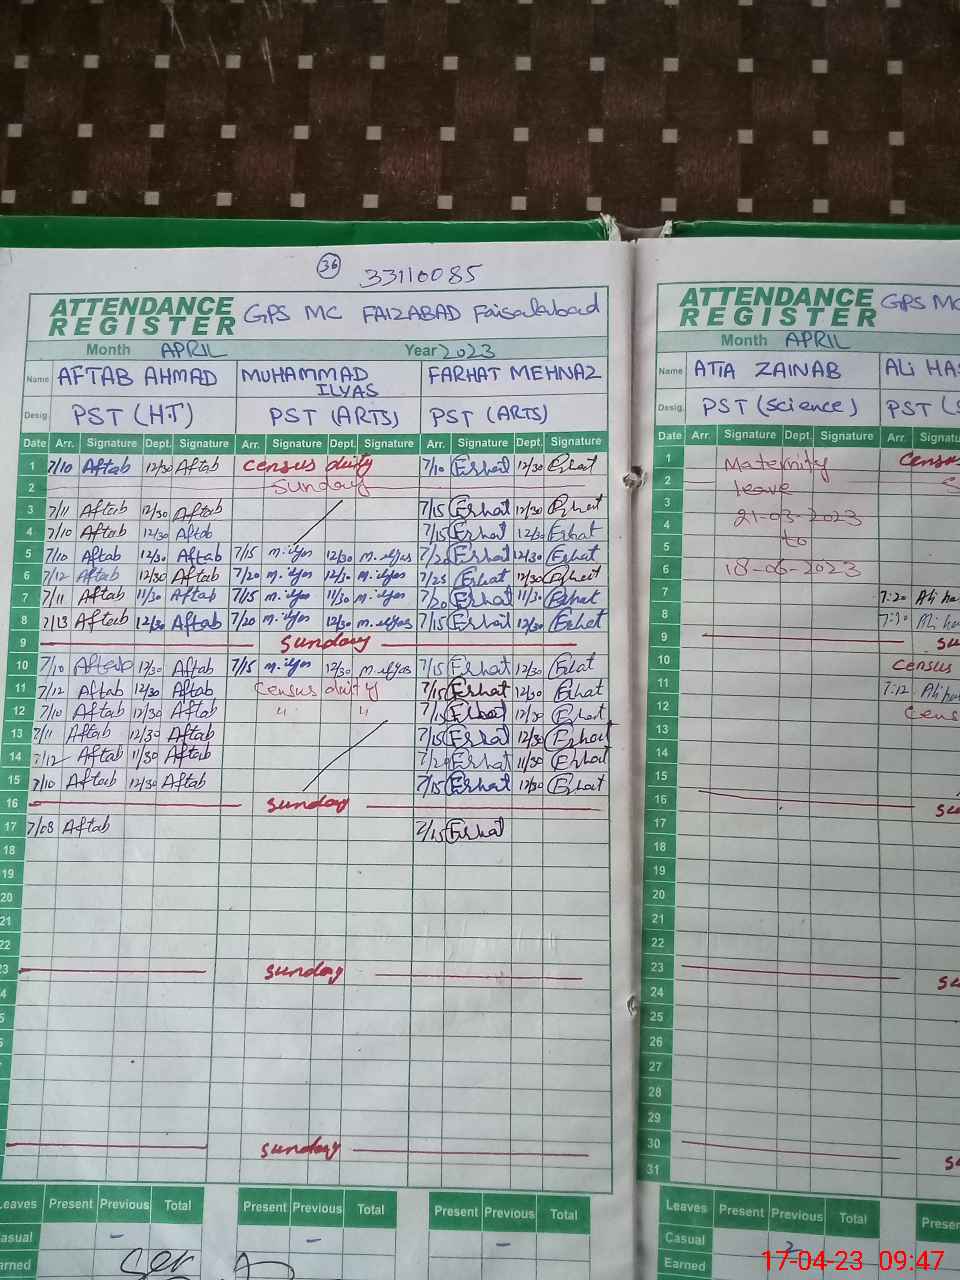 36
33110085
ATTENDANCE REGISTER GPS MC FAIZABAD Faisalabad
Month APRIL Year 2023
Name AFTAB AHMAD MUHAMMAD ILYAS FARHAT MEHNAZ
Desig. PST (H.T) PST (ARTS) PST (ARTS)
Date Arr. Signature Dept. Signature Arr. Signature Dept. Signature Arr. Signature Dept. Signature
1 7/10 Aftab 12/30 Aftab Census duity 7/10 Erhat 12/30 Erhat
2 Sunday
3 7/11 Aftab 12/30 Aftab 7/15 Erhat 12/30 Erhat
4 7/10 Aftab 12/30 Aftab 7/15 Erhat 12/30 Erhat
5 7/10 Aftab 12/30 Aftab 7/15 m.ilyas 12/30 m.ilyas 7/20 Erhat 12/30 Erhat
6 7/12 Aftab 12/30 Aftab 7/20 m.ilyas 12/30 m.ilyas 7/25 Erhat 12/30 Erhat
7 7/11 Aftab 11/30 Aftab 7/15 m.ilyas 11/30 m.ilyas 7/20 Erhat 11/30 Erhat
8 7/13 Aftab 12/30 Aftab 7/20 m.ilyas 12/30 m.ilyas 7/15 Erhat 12/30 Erhat
9 Sunday
10 7/10 Aftab 12/30 Aftab 7/15 m.ilyas 12/30 m.ilyas 7/15 Erhat 12/30 Erhat
11 7/12 Aftab 12/30 Aftab Census duity 7/15 Erhat 12/30 Erhat
12 7/10 Aftab 12/30 Aftab " " 7/15 Erhat 12/30 Erhat
13 7/11 Aftab 12/30 Aftab 7/15 Erhat 12/30 Erhat
14 7/12 Aftab 11/30 Aftab 7/20 Erhat 11/30 Erhat
15 7/10 Aftab 12/30 Aftab 7/15 Erhat 12/30 Erhat
16 Sunday
17 7/08 Aftab 7/15 Erhat
18
19
20
21
22
23 Sunday
Sunday
Leaves Present Previous Total Present Previous Total Present Previous Total
Casual - - -
Earned
ATTENDANCE REGISTER GPS MC
Month APRIL
Name ATIA ZAINAB ALI HAS
Desig. PST (Science) PST (S
Date Arr. Signature Dept. Signature Arr. Signatu
1 Maternity Census
2 leave S
3
4 21-03-2023
5 to
6 18-06-2023
7 7:20 Ali ha
8
9 Su
10 Census
11 7:12 Ali ha
12 Cens
13
14
15
16 Su
17
18
19
20
21
22
23 Su
24
25
26
27
28
29
30 Su
31
Leaves Present Previous Total Presen
Casual 2
Earned
17-04-23 09:47